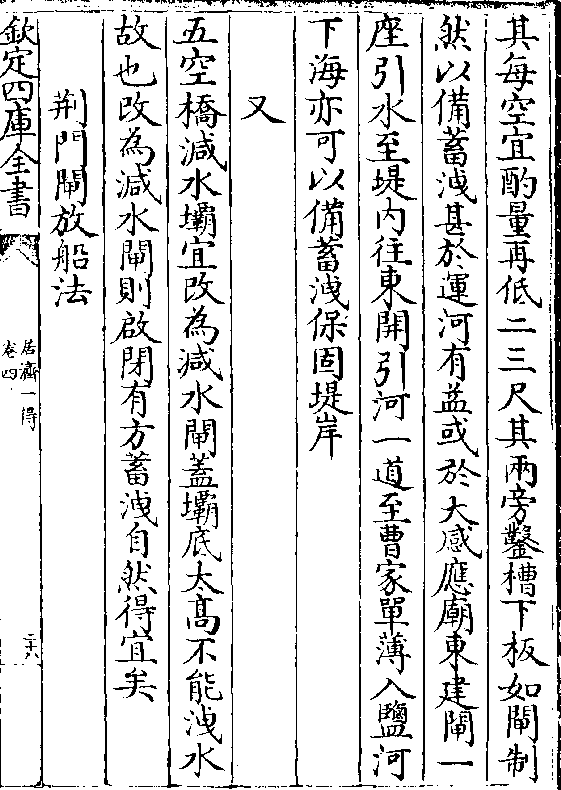 其每空宜酌量再低二三尺其兩旁鑿槽下板如閘制
然以備蓄洩甚於運河有益或於大感應廟東建閘一
座引水至堤内往東開引河一道至曹家單薄入鹽河
下海亦可以備蓄洩保固堤岸
又
五空橋減水壩宜改為減水閘蓋壩底太髙不能洩水
故也改為減水閘則啟閉有方蓄洩自然得宜矣
荆門閘放船法
欽定四庫全書
居濟一得
卷四
二十八